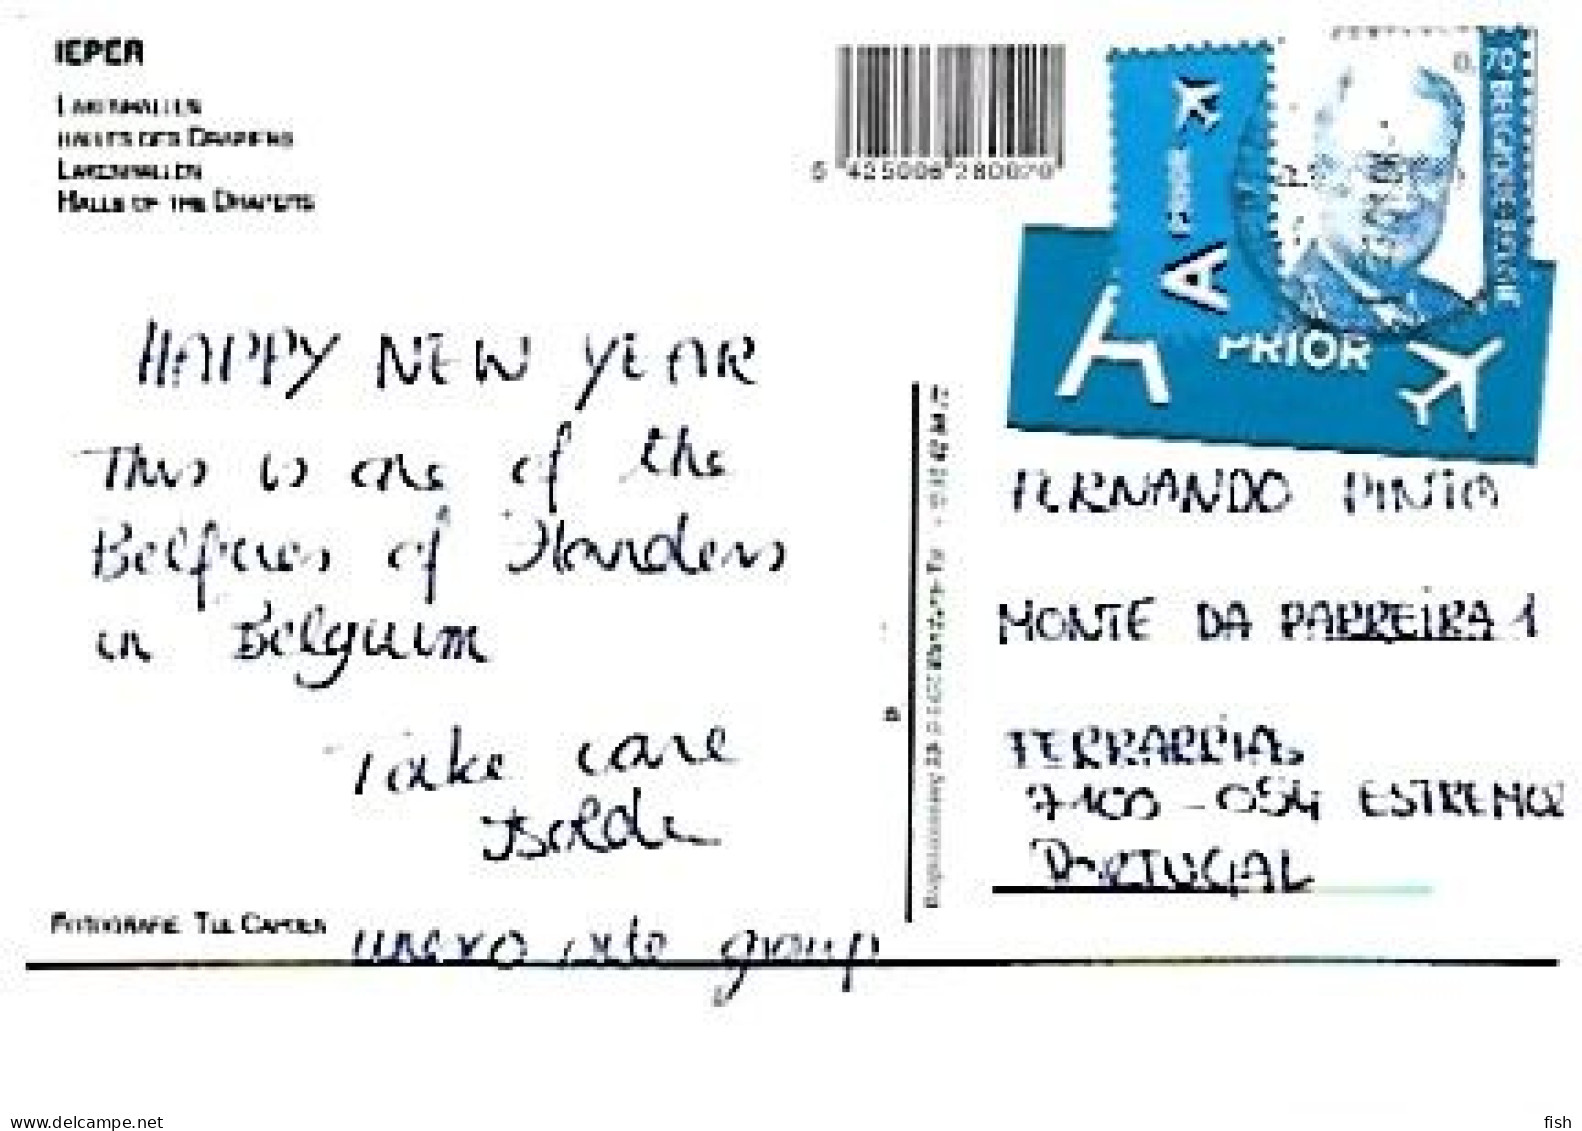 IEPER
LAKENHALLEN
HALLES DES DRAPIERS
LAKENHALLEN
HALLS OF THE DRAPERS
5 425006 280070
A PRIOR
0,70 BELGIQUE BELGIE
A PRIOR
HAPPY NEW YEAR
This is one of the
Belfries of Flanders
in Belgium
Take care
Isolde
unexo site group
FOTOGRAFIE
FERNANDO PINTO
MONTE DA PARREIRA 1
TERRARRIAS
7100-054 ESTREMOZ
PORTUGAL
ww.delcampe.net
fish